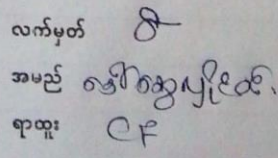 လက်မှတ်
အမည် ဒေါ်ဆွေလှိုင်ထွဋ်
ရာထူး CF